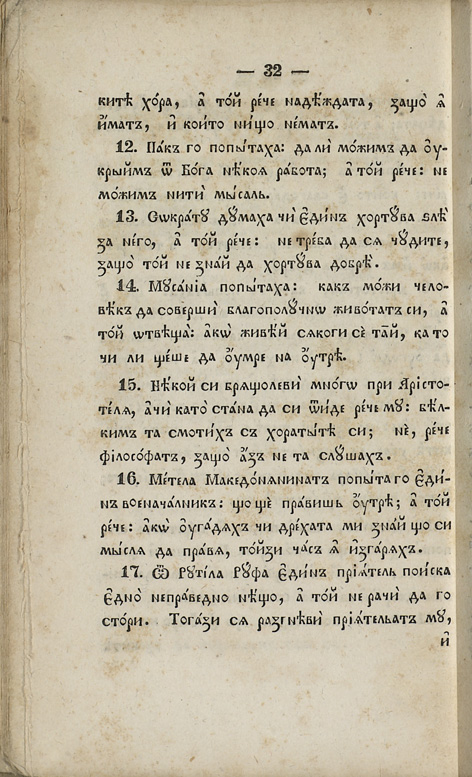 — 32 —
китѣ хо́ра, а҆ то́й ре́че надѣ́ждата, защо̀ ѧ҆̀
и҆́матъ, и҆ кои́то ни́що не́матъ.
12. Па́къ го попы́таха: да лѝ мо́жимъ да ѹ҆-
кры́имъ ѿ Бо́га нѣ́коѧ ра́бота; а҆ то́й ре́че: не
мо́жимъ нитѝ мы́саль.
13. Сѡкра́тꙋ дꙋ́маха чи є҆ди́нъ хортꙋ́ва ѕлѣ̀
за не́го, а҆ то́й ре́че: не тре́ба да сѧ чꙋ́дите,
защо̀ то́й не зна́й да хортꙋ́ва добрѣ̀.
14. Мꙋса́нїа попы́таха: ка́къ мо́жи чело-
вѣ́къ да совершѝ благополꙋ́чнѡ живо́татъ си, а҆
то́й ѡтвѣща̀: а҆кѡ̀ живѣ́й сѧ́коги сѐ та́й, ка то
чи ли ще́ше да ѹ҆́мре на ѹ҆́трѣ.
15. Нѣ́кой си брѧ́щолеви мно́гѡ при А҆рїсто-
те́лѧ, а҆чи като̀ ста́на да си ѿи́де ре́че мꙋ: бѣ́л-
кимъ та смоти́хъ съ хораты́тѣ си; нѐ, ре́че
фїлосо́фатъ, защо̀ а҆́зъ не та слꙋ́шахъ.
16. Ме́тела Македо́нѧнинатъ попы́та го є҆ди́-
нъ военача́лникъ: що ще пра́вишь ѹ҆́трѣ; а҆ то́й
ре́че: а҆кѡ̀ ѹ҆га́дѧхъ чи дре́хата ми зна́й що си
мы́слѧ да пра́вѧ, то́йзи ча́съ ѧ҆̀ и҆зга́рѧхъ.
17. Ѿ Рꙋти́ла Рꙋ́фа є҆ди́нъ прїѧ́тель пои́ска
є҆дно̀ непра́ведно нѣ́що, а҆ то́й не ра́чи да го
сто́ри. Тога́зи сѧ разгнѣ́ви прїѧ́тельатъ мꙋ,
и҆